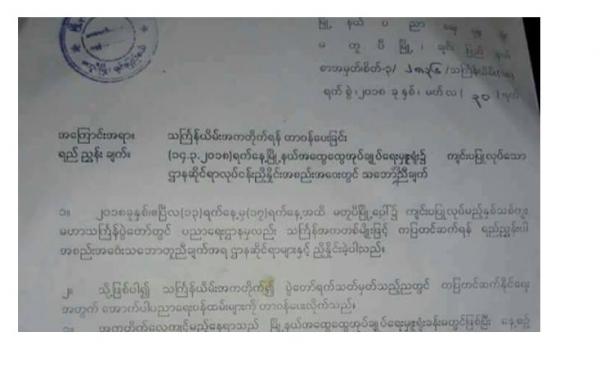 မြို့နယ်ပညာရေးမှူးရုံး
မတူပီမြို့၊ ချင်းပြည်နယ်
ရက်စွဲ၊ ၂၀၁၈ ခုနှစ်၊ မတ်လ (၃၀) ရက်
အကြောင်းအရာ။ သင်္ကြန်ယိမ်းအကတိုက်ရန် တာဝန်ပေးခြင်း
ရည်ညွှန်းချက်။ (၁၄.၃.၂၀၁၈)ရက်နေ့မြို့နယ်အထွေထွေအုပ်ချုပ်ရေးမှူးရုံး၌ ကျင်းပပြုလုပ်သော
ဌာနဆိုင်ရာလုပ်ငန်းညှိနှိုင်းအစည်းအဝေးတွင် သဘောတူညီချက်
၁။ ၂၀၁၈ခုနှစ်၊ဧပြီလ(၁၃)ရက်နေ့မှ(၁၇)ရက်နေ့အထိ မတူပီမြို့ပေါ်၌ ကျင်းပပြုလုပ်မည့်နှစ်သစ်ကူး
မဟာသင်္ကြန်ပွဲတော်တွင် ပညာရေးဌာနမှလည်း သင်္ကြန်အကတစ်မျိုးဖြင့် ကပြတင်ဆက်ရန် ရည်ညွှန်းပါ
အစည်းအဝေးသဘောတူညီချက်အရ ဌာနဆိုင်ရာများနှင့် ညှိနှိုင်းခဲ့ပါသည်။
၂။ သို့ဖြစ်ပါ၍ သင်္ကြန်ယိမ်းအကတိုက်၍ ပွဲတော်ရက်သတ်မှတ်သည့်ညတွင် ကပြတင်ဆက်နိုင်ရေး
အတွက် အောက်ပါပညာရေးဝန်ထမ်းများကို တာဝန်ပေးလိုက်သည်။
အကတိုက်လေ့ကျင့်မည့်နေရာသည် မြို့နယ်အထွေထွေအုပ်ချုပ်ရေးမှူးရုံးခန်းမတွင်ဖြစ်ပြီး နေ့စဉ်